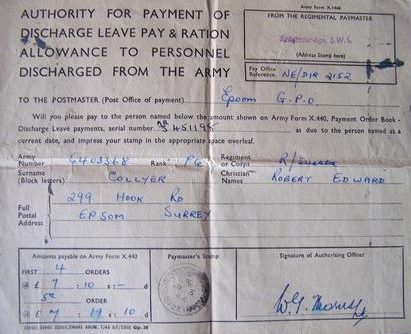 Army Form X.968
AUTHORITY FOR PAYMENT OF
DISCHARGE LEAVE PAY & RATION
ALLOWANCE TO PERSONNEL
DISCHARGED FROM THE ARMY
FROM THE REGIMENTAL PAYMASTER
Knightsbridge, S.W.1.
(Address Stamp here)
Pay Office Reference. NE/DIR 2152
TO THE POSTMASTER (Post Office of payment) Epsom G.P.O
Will you please pay to the person named below the amount shown on Army Form X.440, Payment Order Book -
Discharge Leave payments, serial number as due to the person named at a
current date, and impress your stamp in the appropriate space overleaf.
Army Number 6403368 Rank Pte Regiment or Corps R/Sussex
Surname (Block letters) COLLYER Christian Names ROBERT EDWARD
Full Postal Address 299 HOOK RD
EPSOM SURREY
Amounts payable on Army Form X.440
FIRST 4 ORDERS
@ £ 7 : 10 : —
5th ORDER
@ £ 7 : 19 : 10
Paymaster's Stamp
Signature of Authorising Officer